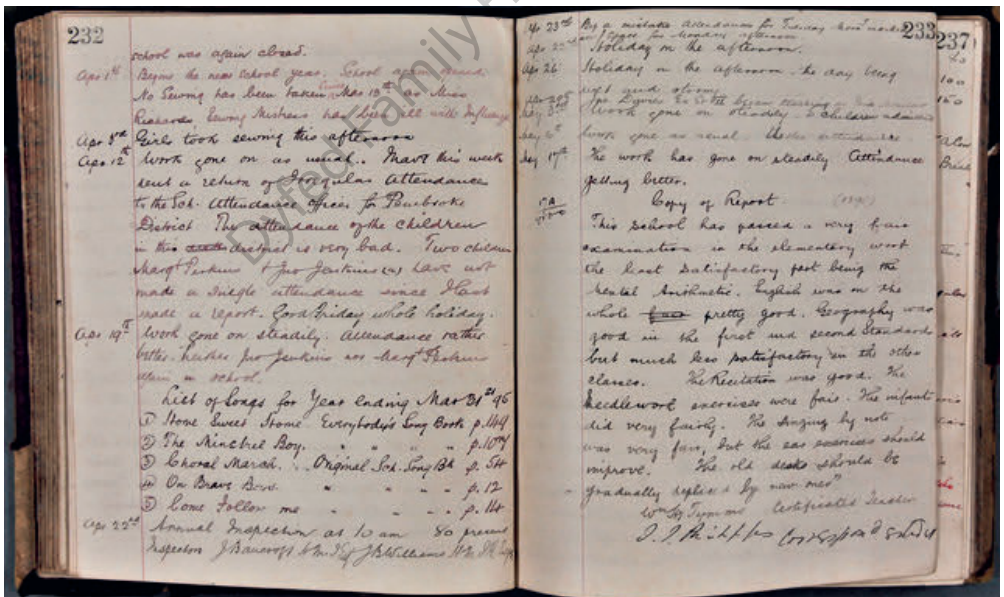 232
school was again closed.
Apr 1st Begins the new school year. School again
No Sewing has been taken since Mar 15th as Miss
Richards Sewing Mistress has been ill with Influenza
Apr 3rd Girls took sewing this afternoon
Apr 12th Work gone on as usual. Have this week
sent a return of Irregular Attendance
to the Sch. Attendance officer for Pembroke
District The attendance of the children
in this district is very bad. Two children
Margt Perkins & Jno Jenkins have not
made a single attendance since I last
made a report. Good Friday whole holiday.
Apr 19th Work gone on steadily. Attendance rather
better. Neither Jno Jenkins nor Margt Perkins
again in school.
List of Songs for Year ending Mar 31st 96
① Home Sweet Home Everybody's Song Book p.149
② The Minstrel Boy. " " " p.107
③ Choral March. Original Sch. Song Bk p. 54
④ On Brave Boys " " " p. 12
⑤ Come Follow me " " " p. 14
Apr 22nd Annual Inspection at 10 am 80 present
Inspectors J Bancroft H.M.I. & J B Williams
233
Apr 23rd By a mistake attendances for Tuesday were marked
in space for Monday afternoon
Holiday on the afternoon.
Apr 26 Holiday on the afternoon the day being
wet and stormy
Work gone on steadily 2 children admitted
Work gone as usual. attendance
May 17th The work has gone on steadily Attendance
getting better.
Copy of Report
This School has passed a very fair
examination in the elementary work
the least satisfactory part being the
Mental Arithmetic. English was on the
whole pretty good. Geography was
good in the first and second Standards
but much less satisfactory in the other
classes. The Recitation was good. The
Needlework exercises were fair. The infants
did very fairly. The Singing by note
was very fair, but the ear exercises should
improve. The old desks should be
gradually replaced by new ones
Certificated Teacher
237